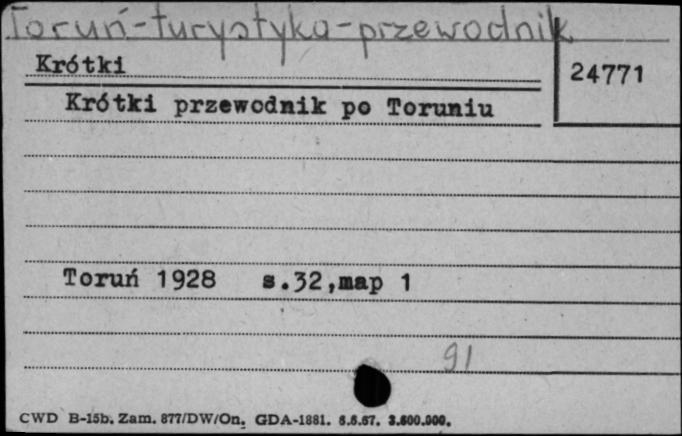 Toruń-turystyka-przewodnik
Krótki
24771
Krótki przewodnik po Toruniu
Toruń 1928 s.32,map 1
91
CWD B-15b. Zam. 877/DW/On. GDA-1881. 6.6.67. 3.600.000.